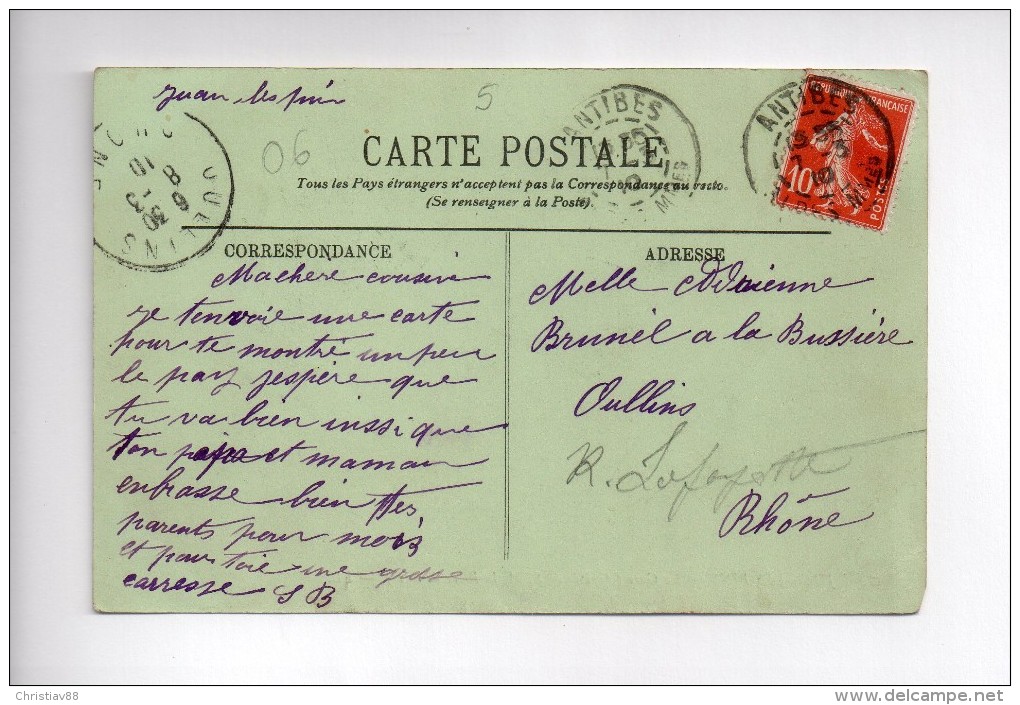 Juan les pins
5
06
ANTIBES
ANTIBES
RÉPUBLIQUE FRANÇAISE
10
POSTES
OULLINS
CARTE POSTALE
Tous les Pays étrangers n'acceptent pas la Correspondance au recto.
(Se renseigner à la Poste).
CORRESPONDANCE
Machere cousine
je tenvoie une carte
pour te montré un peu
le pay jespère que
tu va bien inssi que
ton papa et maman
enbrasse bien tes
parents pour mois
et pour toie une grosse
carresse S B
ADRESSE
Melle Adrienne
Brunel a la Bussière
Oullins
R. Lafayette
Rhône
Christiav88
www.delcampe.net